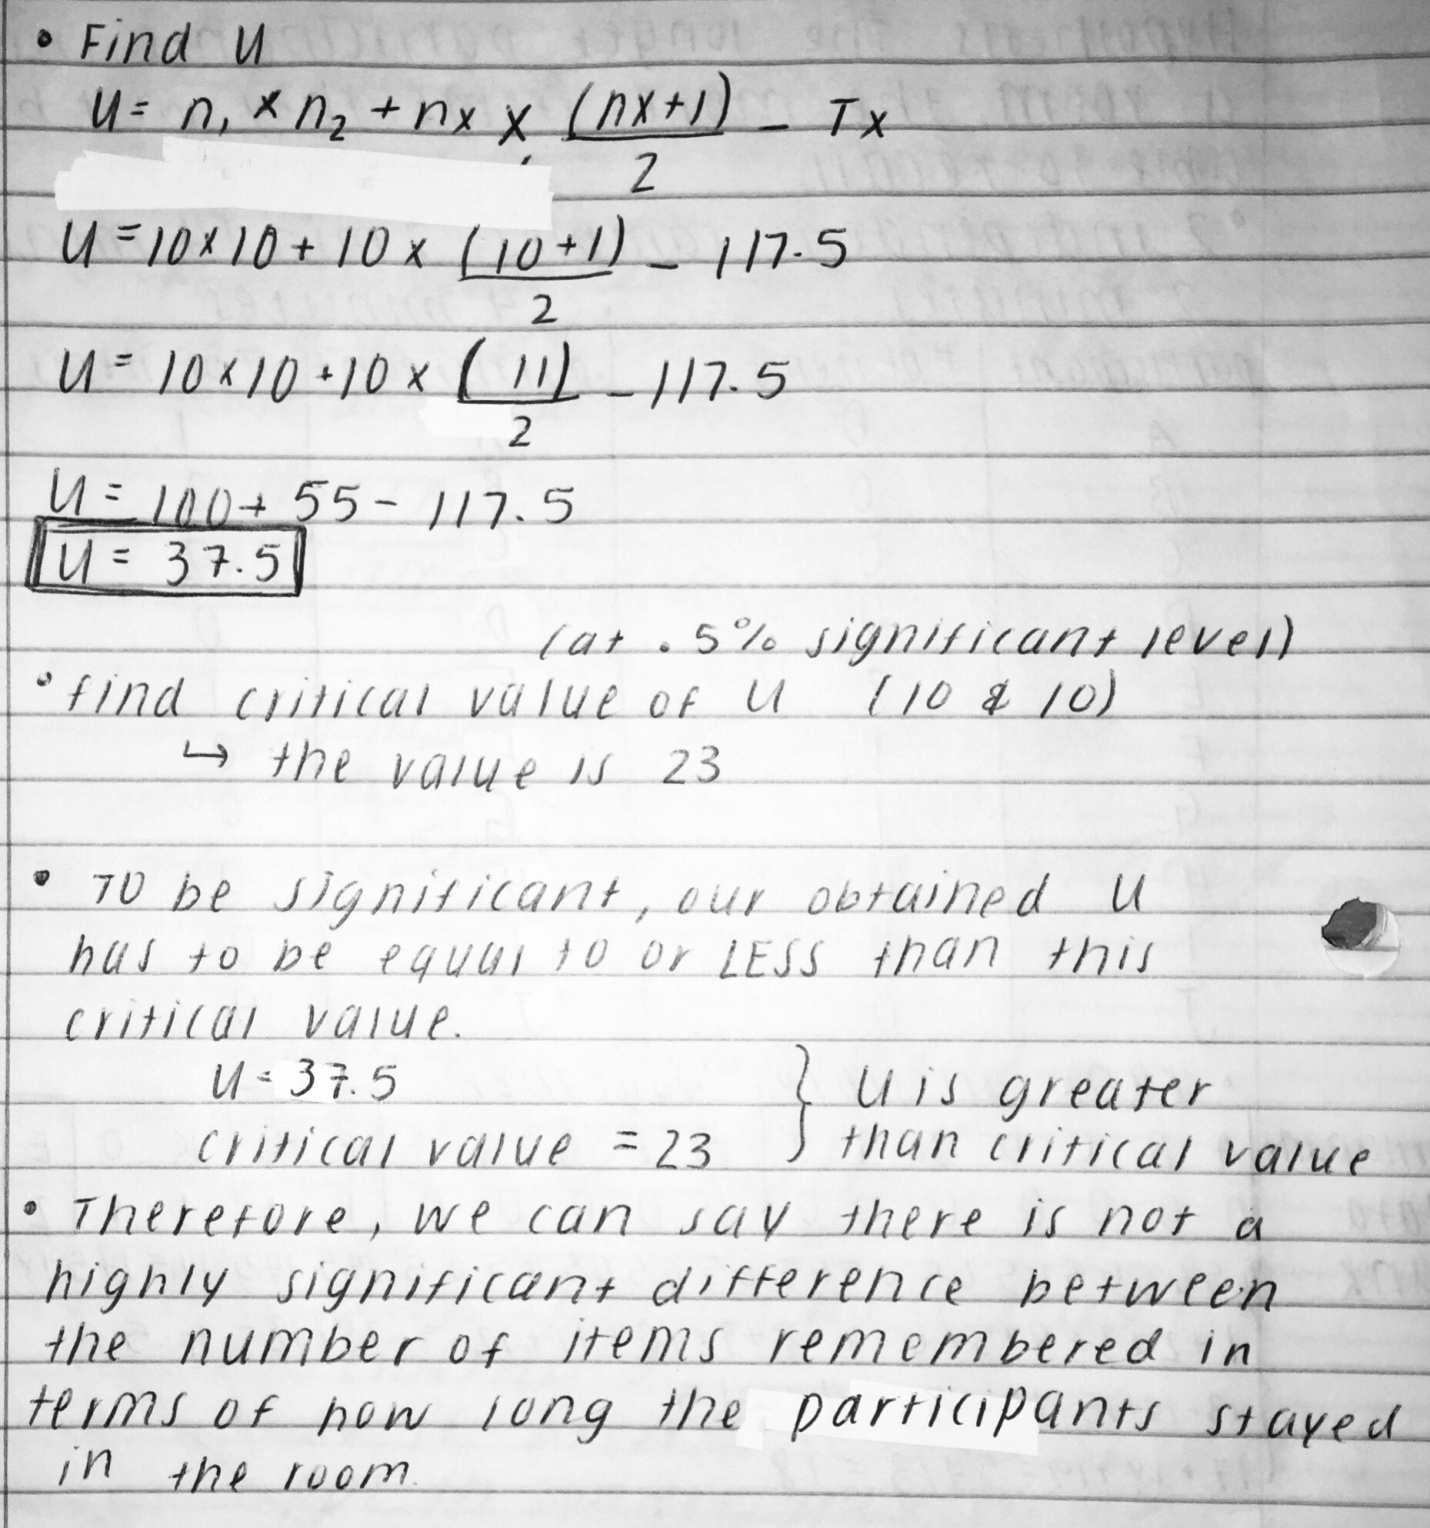 • Find U
U = n₁ × n₂ + nx × (nx+1)/2 − Tx
U = 10 × 10 + 10 × (10+1)/2 − 117.5
U = 10 × 10 + 10 × (11)/2 − 117.5
U = 100 + 55 − 117.5
U = 37.5
(at .5% significant level)
• find critical value of U (10 & 10)
↳ the value is 23
• To be significant, our obtained U
has to be equal to or LESS than this
critical value.
U = 37.5 } U is greater
critical value = 23 than critical value
• Therefore, we can say there is not a
highly significant difference between
the number of items remembered in
terms of how long the participants stayed
in the room.